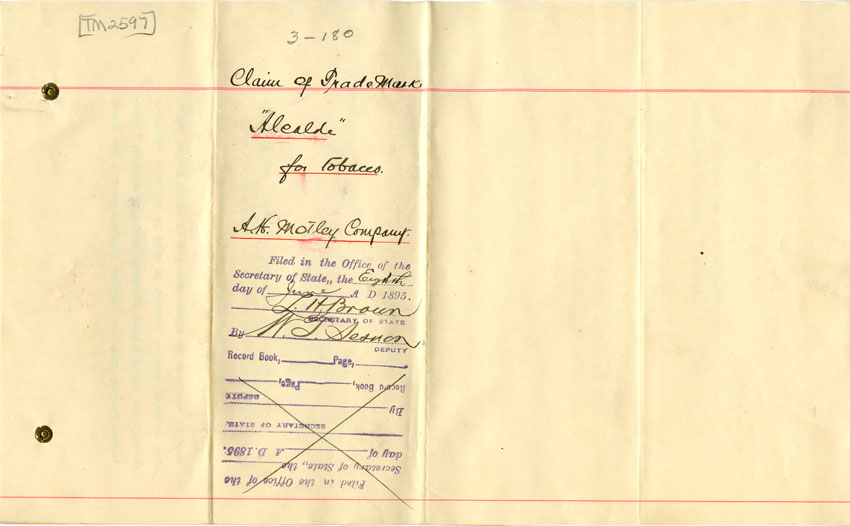 [TM2597]
3-180
Claim of Trade Mark
"Alcalde"
for Tobacco.
A.H. Motley Company.
Filed in the Office of the
Secretary of State,, the Eighth
day of June A D 1895.
L. H. Brown
SECRETARY OF STATE
By W. T. Sesnon
DEPUTY
Record Book, Page,
Record Book, Page,
By
DEPUTY
SECRETARY OF STATE.
day of A D. 1895.
Secretary of State,, the
Filed in the Office of the